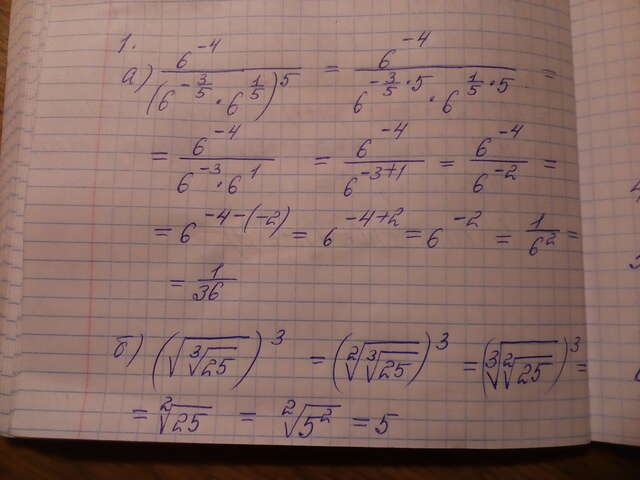 1.
а) 6^-4 / (6^-3/5 · 6^1/5)^5 = 6^-4 / 6^-3/5·5 · 6^1/5·5 =
= 6^-4 / 6^-3 · 6^1 = 6^-4 / 6^-3+1 = 6^-4 / 6^-2 =
= 6^-4-(-2) = 6^-4+2 = 6^-2 = 1/6^2 =
= 1/36
б) (√(∛25))^3 = (²√(∛25))^3 = (∛(²√25))^3 =
= ²√25 = ²√5^2 = 5